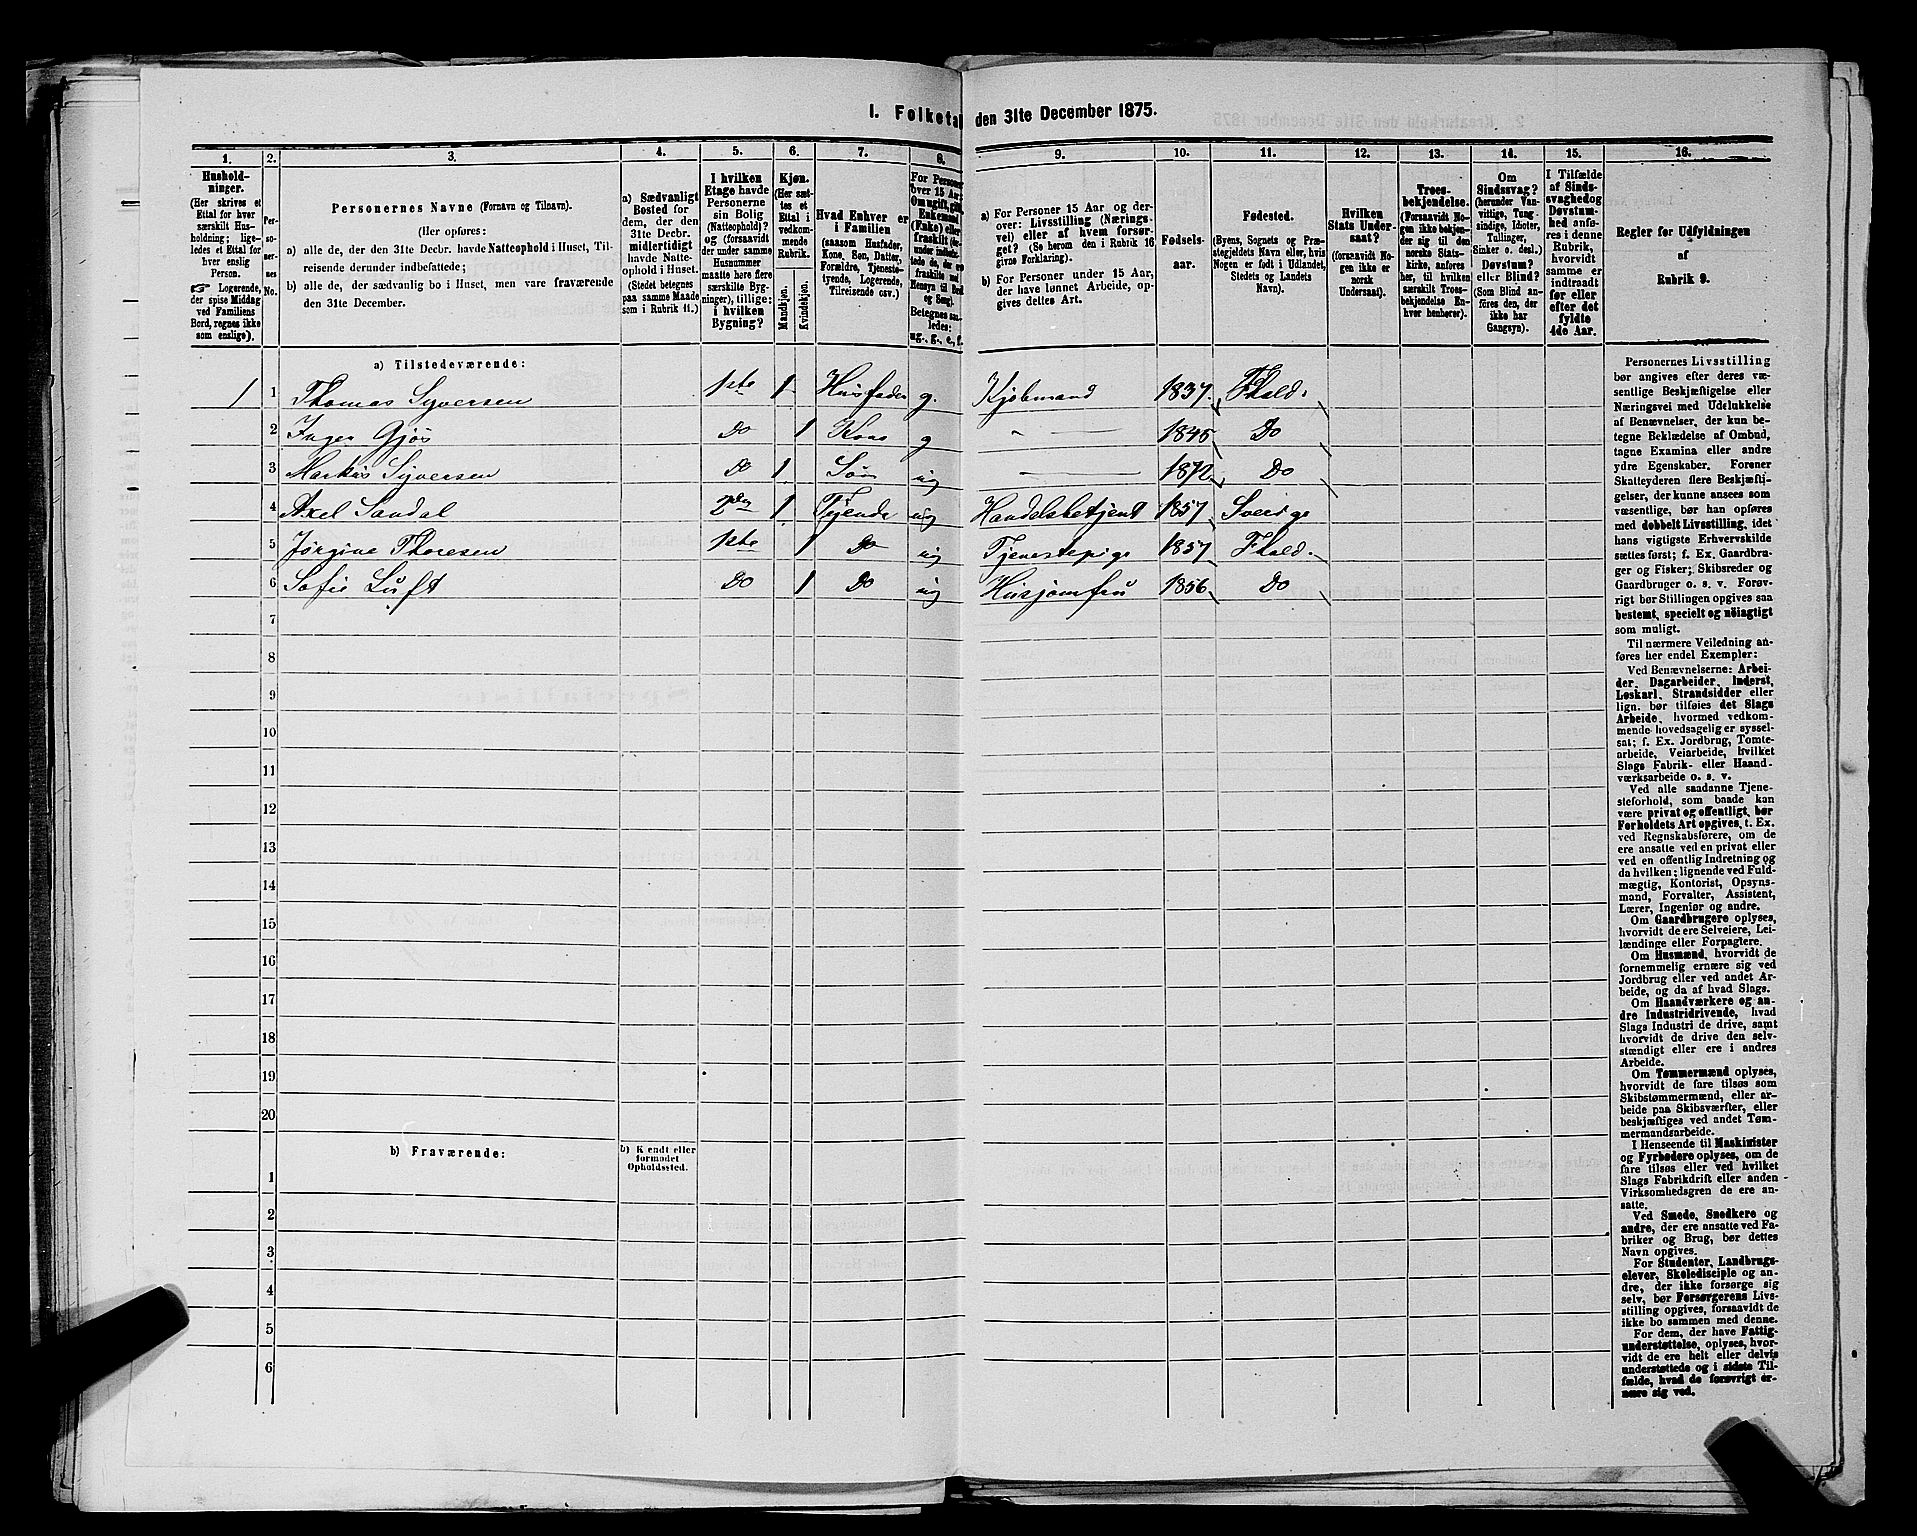 1. Folketal den 31te December 1875.
1. 2. 3. 4. 5. 6. 7. 8. 9. 10. 11. 12. 13. 14. 15. 16.
Hushold-
ninger.
(Her skrives et
Ettal for hver
særskilt Hus-
holdning; lige-
ledes et Ettal for
hver enslig
Person.
☞ Logerende,
der spise Middag
ved Familiens
Bord, regnes ikke
som enslige).
Per-
so-
ner-
nes
No.
Personernes Navne (Fornavn og Tilnavn).
(Her opføres:
a) alle de, der den 31te Decbr. havde Natteophold i Huset, Til-
reisende derunder indbefattede;
b) alle de, der sædvanlig bo i Huset, men vare fraværende
den 31te December.
a) Sædvanligt
Bosted for
dem, der den
31te Decbr.
midlertidigt
havde Natte-
ophold i Huset.
(Stedet betegnes
paa samme Maade
som i Rubrik 11.)
I hvilken
Etage havde
Personerne
sin Bolig
(Natteophold)?
og (forsaavidt
der under samme
Husnummer
maatte høre flere
særskilte Byg-
ninger), tillige:
i hvilken
Bygning?
Kjøn.
(Her sæt-
tes et
Ettal i
vedkom-
mende
Rubrik.
Mandkjøn.
Kvindekjøn.
Hvad Enhver er
i Familien
(saasom Husfader,
Kone, Søn, Datter,
Forældre, Tjeneste-
tyende, Logerende,
Tilreisende osv.)
For Personer
over 15 Aar:
Om ugift, gift,
Enkemand
(Enke) eller
fraskilt
Betegnes saa-
ledes:
ug., g., e., f.
a) For Personer 15 Aar og der-
over: Livsstilling (Nærings-
vei) eller af hvem forsør-
get? (Se herom den i Rubrik 16
givne Forklaring).
b) For Personer under 15 Aar,
der have lønnet Arbeide, op-
gives dettes Art.
Fødsels-
aar.
Fødested.
(Byens, Sognets og Præ-
stegjeldets Navn eller, hvis
Nogen er født i Udlandet,
Stedets og Landets
Navn).
Hvilken
Stats Under-
saat?
(forsaavidt No-
gen ikke er
norsk
Undersaat).
Troes-
bekjendelse.
(Forsaavidt No-
gen ikke bekjen-
der sig til den
norske Stats-
kirke, anføres
her, til hvilken
særskilt Troes-
bekjendelse En-
hver henhører).
Om
Sindssvag?
eller Blind?
(herunder Van-
vittige, Tung-
sindige, Idioter,
Tullinger,
Sinker o. desl.).
Døvstum?
eller Blind?
(Som Blind an-
føres den, der
ikke har
Gangsyn).
I Tilfælde
af Sinds-
svaghed og
Døvstum-
hed anfø-
res i denne
Rubrik,
hvorvidt
samme er
indtraadt
før eller
efter det
fyldte
4de Aar.
Regler for Udfyldningen
af
Rubrik 9.
a) Tilstedeværende:
1 1 Thomas Syversen 1ste 1 Husfader g. Kjøbmand 1837. Fhald.
2 Inger Gjös Do 1 Kone g " — 1845 Do
3 Markus Syversen Do 1 Søn ug — 1872 Do
4 Axel Sandal 2den 1 Tyende ug Handelsbetjent 1857 Sverige
5 Jørgine Thoresen 1ste 1 Do ug Tjenestepige 1857 Fhald.
6 Sofie Luft Do 1 Do ug Husjomfru 1856 Do
7
8
9
10
11
12
13
14
15
16
17
18
19
20
b) Fraværende:
b) Kjendt eller
formodet
Opholdssted.
1
2
3
4
5
6
Personernes Livsstilling
bør angives efter deres væ-
sentlige Beskjæftigelse eller
Næringsvei med Udelukkelse
af Benævnelser, der kun be-
tegne Beklædelse af Ombud,
tagne Examina eller andre
ydre Egenskaber. Forener
Skatteyderen flere Beskjæfti-
gelser, der kunne ansees som
væsentlige, bør han opføres
med dobbelt Livsstilling, idet
hans vigtigste Erhvervskilde
sættes først; f. Ex. Gaardbru-
ger og Fisker; Skibsreder og
Gaardbruger o. s. v. Forøv-
rigt bør Stillingen opgives saa
bestemt, specielt og nöiagtigt
som muligt.
Til nærmere Veiledning an-
føres her endel Exempler:
Ved Benævnelserne: Arbei-
der, Dagarbeider, Inderst,
Løskarl, Strandsidder eller
lign. bør tilføies det Slags
Arbeide, hvormed vedkom-
mende hovedsagelig er syssel-
sat; f. Ex. Jordbrug, Tomte-
arbeide, Veiarbeide, hvilket
Slags Fabrik- eller Haand-
værksarbeide o. s. v.
Ved alle saadanne Tjene-
steforhold, som baade kan
være privat og offentligt, bør
Forholdets Art opgives, t. Ex.
ved Regnskabsførere, om de
ere ansatte ved en privat eller
ved en offentlig Indretning og
da hvilken; lignende ved Fuld-
mægtig, Kontorist, Opsyns-
mand, Forvalter, Assistent,
Lærer, Ingeniør og andre.
Om Gaardbrugere oplyses,
hvorvidt de ere Selveiere, Lei-
lændinge eller Forpagtere.
Om Husmænd, hvorvidt de
fornemmelig ernære sig ved
Jordbrug eller ved andet Ar-
beide, og da af hvad Slags.
Om Haandværkere og an-
dre Industridrivende, hvad
Slags Industri de drive, samt
hvorvidt de drive den selv-
stændigt eller ere i andres
Arbeide.
Om Tømmermænd oplyses,
hvorvidt de fare tilsøs som
Skibstømmermænd, eller ar-
beide paa Skibsværfter, eller
beskjæftiges ved andet Tøm-
mermandsarbeide.
I Henseende til Maskinister
og Fyrbødere oplyses, om de
fare tilsøs eller ved hvilket
Slags Fabrikdrift eller anden
Virksomhedsgren de ere an-
satte.
Ved Smede, Snedkere og
andre, der ere ansatte ved Fa-
briker og Brug, bør dettes
Navn opgives.
For Studenter, Landbrugs-
elever, Skoledisciple og an-
dre, der ikke forsørge sig
selv, bør Forsørgerens Livs-
stilling opgives, forsaavidt de
ikke bo sammen med denne.
For dem, der have Fattig-
understøttelse, oplyses, hvor-
vidt de ere helt eller delvis
understøttede og i sidste Til-
fælde, hvad de forøvrigt er-
nære sig ved.